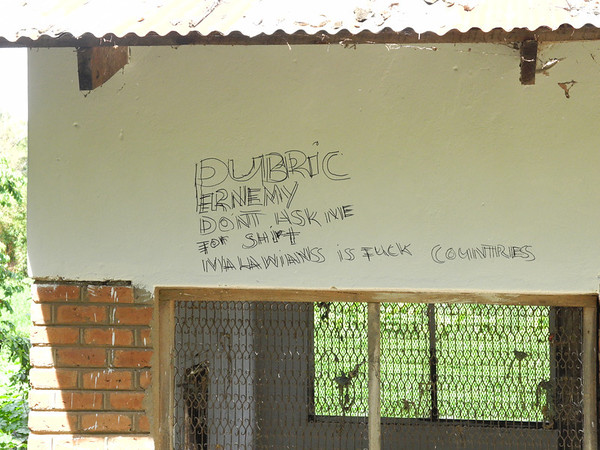 PUBRIC
ERNEMY
DONT ASK ME
FOR SHIT
MALAWIANS IS FUCK COUNTRIES